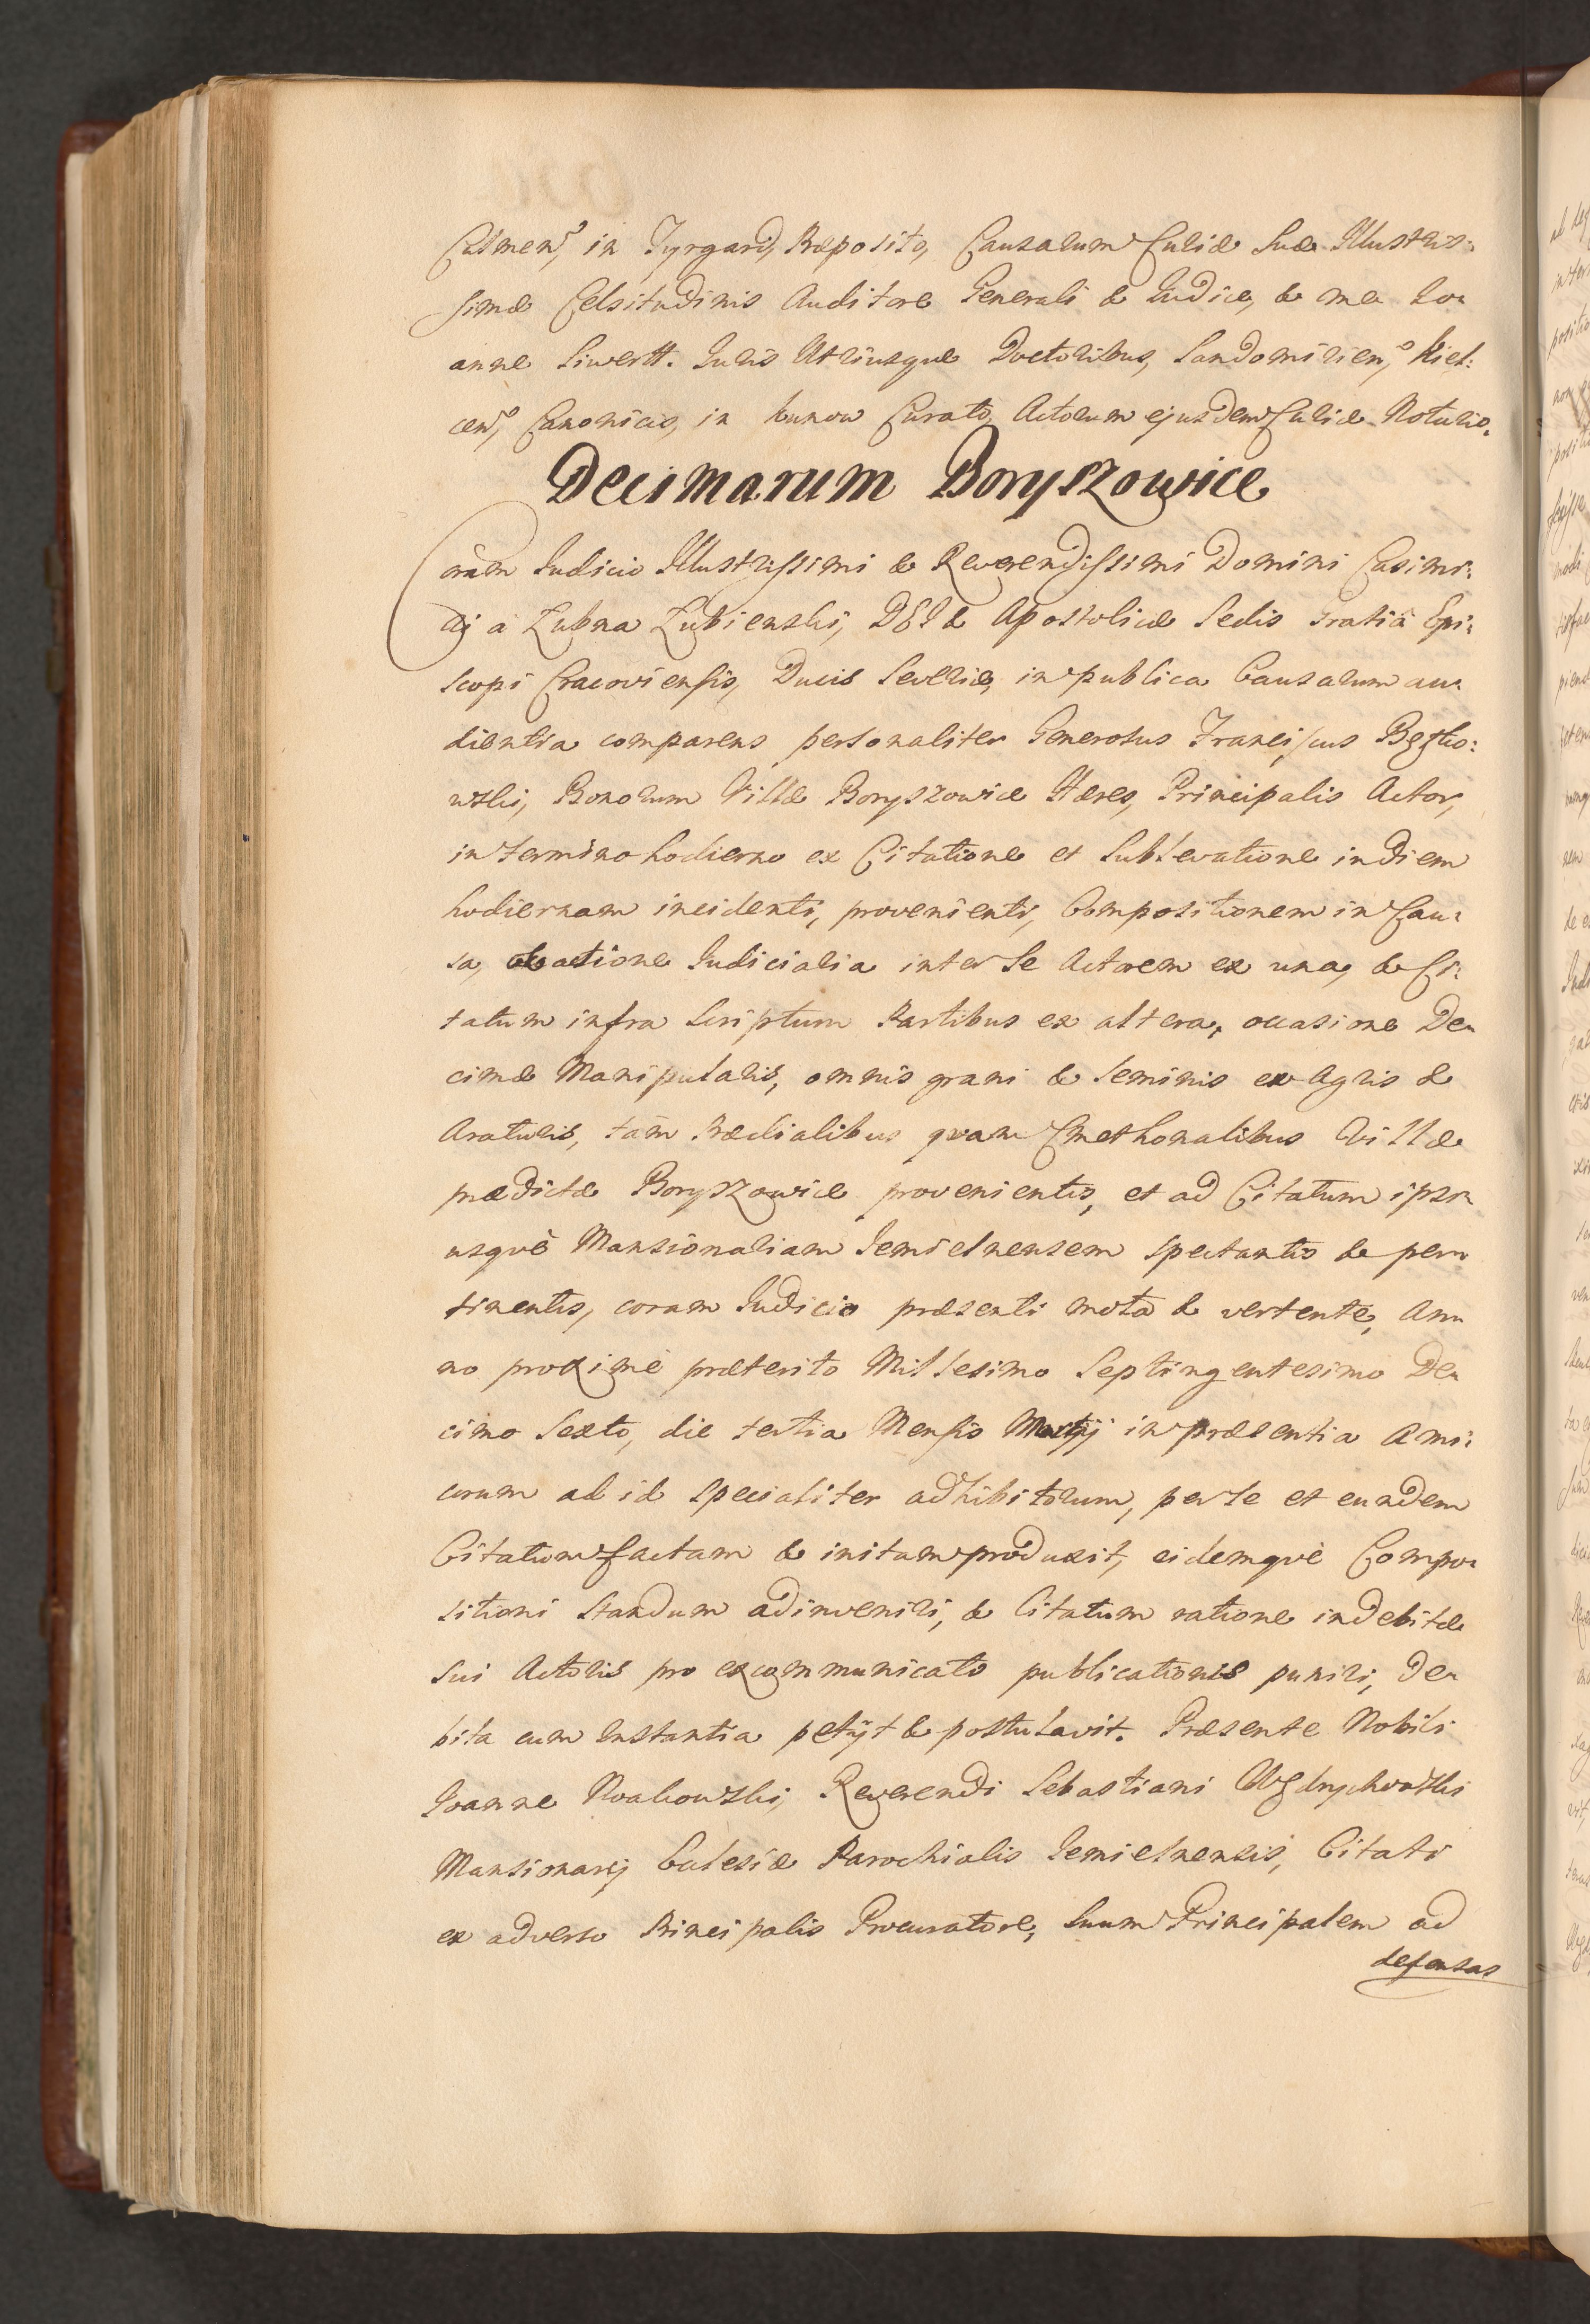 in Tyrgard, Præposito, Causarum Curiæ Suæ Illustris:
simæ Celsitudinis Auditore Generali & Iudice, & me Io=
anne Siwertt. Iuris Utriusque Doctoribus, Sandomirien, Kiel:
cen, Canonicis, in Kunow Curato, Actorum ejusdem Curiæ Notario.
Decimarum Boryszowice
Coram Iudicio Illustrissimi & Reverendissimi Domini Casimi:
rij à Łubna Łubienski, DEI & Apostolicæ Sedis Gratiâ Epi:
scopi Cracoviensis, Ducis Severiæ, in publica Causarum au=
dientia comparens personaliter Generosus Franciscus
Bonorum Villæ Boryszowice Hæres, Principalis Actor,
in termino hodierno ex Citatione et Sublevatione in diem
hodiernam incidenti, provenienti, Compositionem in Cau=
sa, & actione Iudiciaria inter Se Actorem ex una, & Ci:
tatum infra Scriptum Partibus ex altera, occasione De=
cimæ Manipularis, omnis grani & Seminis ex Agris &
Araturis, tàm Prædialibus quam Cmethonalibus Villæ
prædictæ Boryszowice provenientis, et ad Citatum ipsi=
usquè Mansionariam Iemielnensem spectantis & per=
tinentis, coram Iudicio præsenti mota & vertente, An=
no proximè præterito Millesimo Septingentesimo De=
cimo Sexto, die tertia Mensis Martij in præsentia Ami:
corum ad id Specialiter adhibitorum, per Se et eundem
Citatum factam & initam produxit, eidemquè Compo=
sitioni Standum adinveniri, & Citatum ratione indebitæ
Sui Actoris pro excommunicato publicationis puniri, de=
bita cum Instantia petijt & postulavit. Præsente Nobili
Ioanne Reverendi Sebastiani
Mansionarij Ecclesiæ Parochialis Iemielnensis, Citati
ex adverso Principalis Procuratore, Suum Principalem ad
defensas